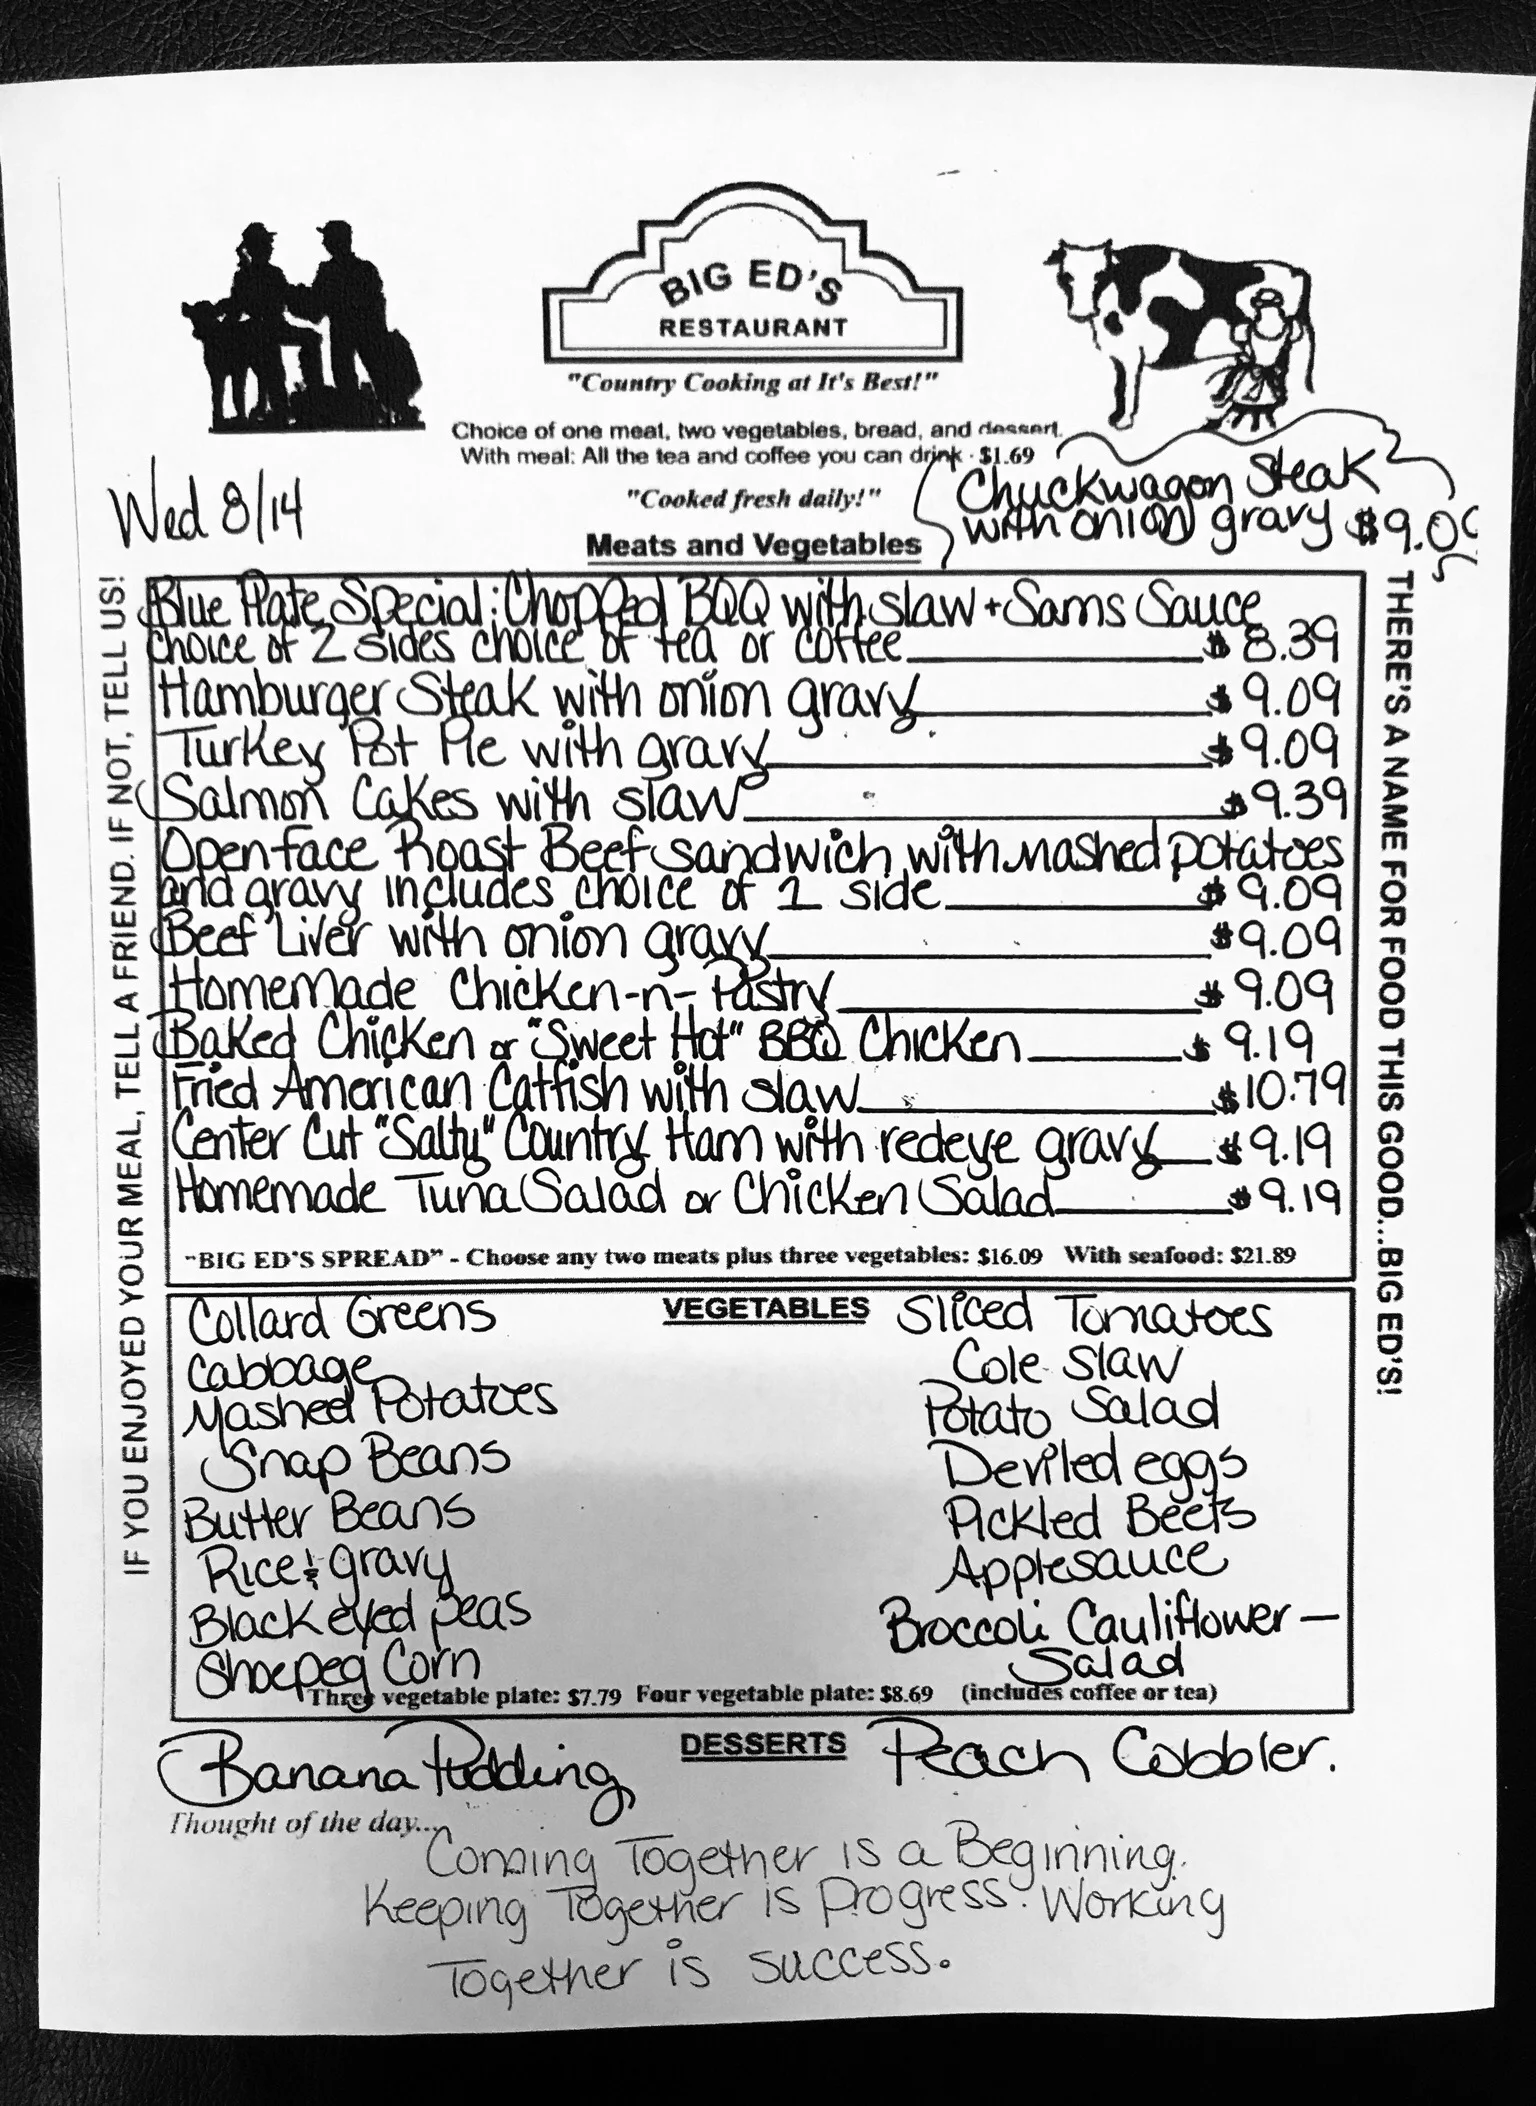 BIG ED'S
RESTAURANT
"Country Cooking at It's Best!"
Choice of one meat, two vegetables, bread, and dessert.
With meal: All the tea and coffee you can drink - $1.69
Wed 8/14
"Cooked fresh daily!"
Chuckwagon Steak
with onion gravy $9.09
Meats and Vegetables
Blue Plate Special: Chopped BQQ with slaw + Sams Sauce
choice of 2 sides choice of tea or coffee $8.39
Hamburger Steak with onion gravy $9.09
Turkey Pot Pie with gravy $9.09
Salmon Cakes with slaw $9.39
Open face Roast Beef sandwich with mashed potatoes
and gravy includes choice of 1 side $9.09
Beef Liver with onion gravy $9.09
Homemade Chicken-n-Pastry $9.09
Baked Chicken or "Sweet Hot" BBQ Chicken $9.19
Fried American Catfish with slaw $10.79
Center Cut "Salty" Country Ham with redeye gravy $9.19
Homemade Tuna Salad or Chicken Salad $9.19
"BIG ED'S SPREAD" - Choose any two meats plus three vegetables: $16.09 With seafood: $21.89
IF YOU ENJOYED YOUR MEAL, TELL A FRIEND. IF NOT, TELL US!
THERE'S A NAME FOR FOOD THIS GOOD...BIG ED'S!
VEGETABLES
Collard Greens
Cabbage
Mashed Potatoes
Snap Beans
Butter Beans
Rice & gravy
Black eyed peas
Shoepeg Corn
Sliced Tomatoes
Cole Slaw
Potato Salad
Deviled eggs
Pickled Beets
Applesauce
Broccoli Cauliflower —
Salad
Three vegetable plate: $7.79 Four vegetable plate: $8.69 (includes coffee or tea)
DESSERTS
Banana Pudding
Peach Cobbler.
Thought of the day...
Coming Together is a Beginning.
Keeping Together is Progress. Working
Together is success.